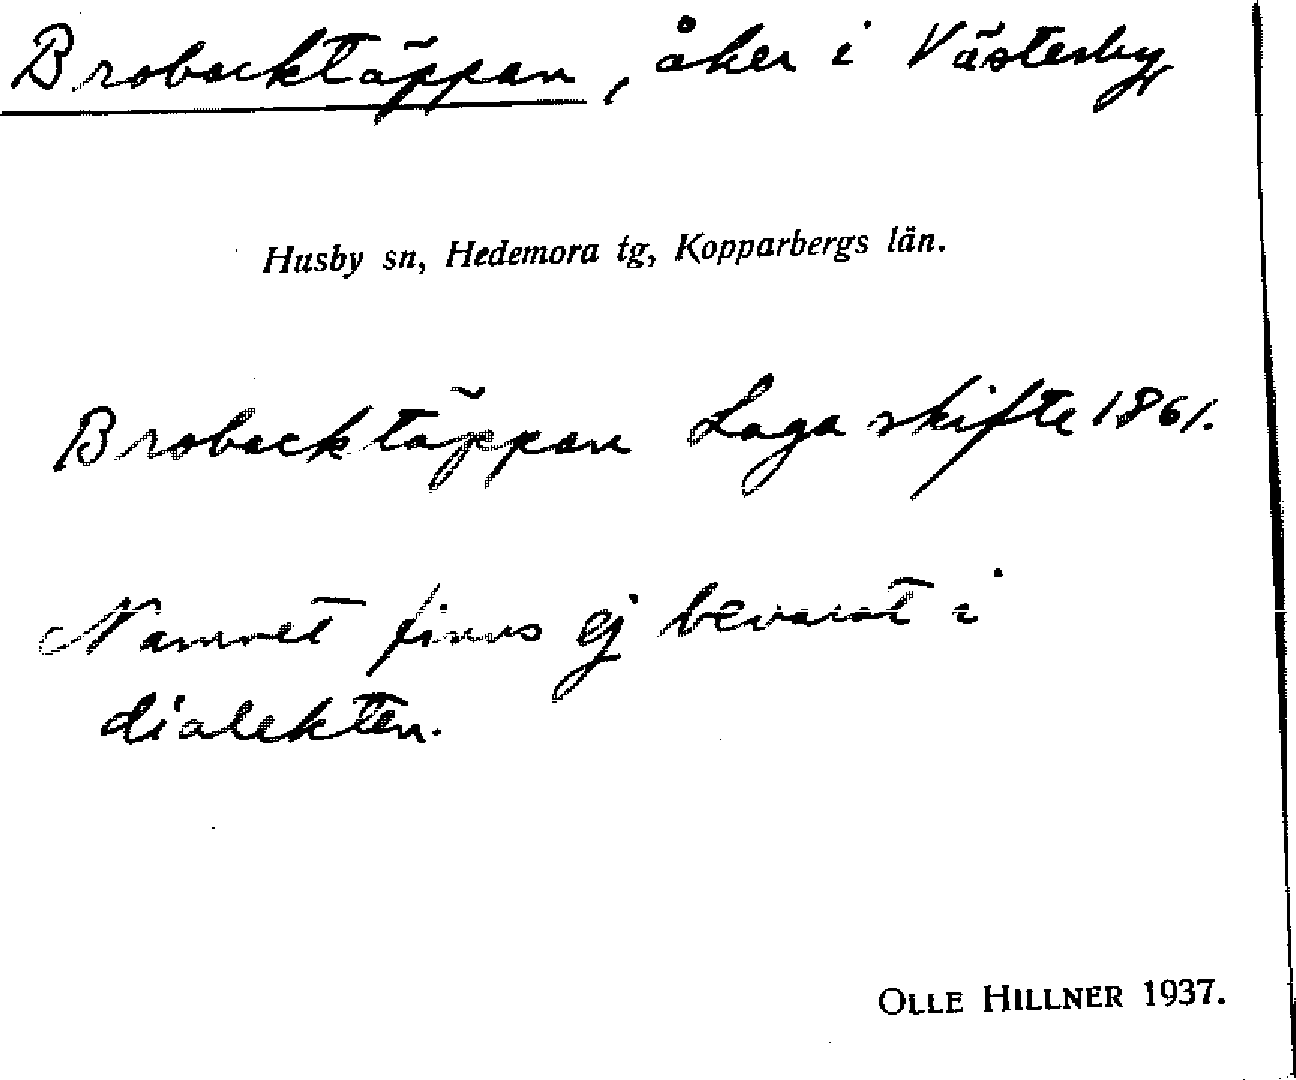 Brobacktäppan, åker i Västerby
Husby sn, Hedemora tg, Kopparbergs län.
Brobacktäppan Laga skifte 1861.
Namnet finns ej bevarat i
dialekten.
OLLE HILLNER 1937.